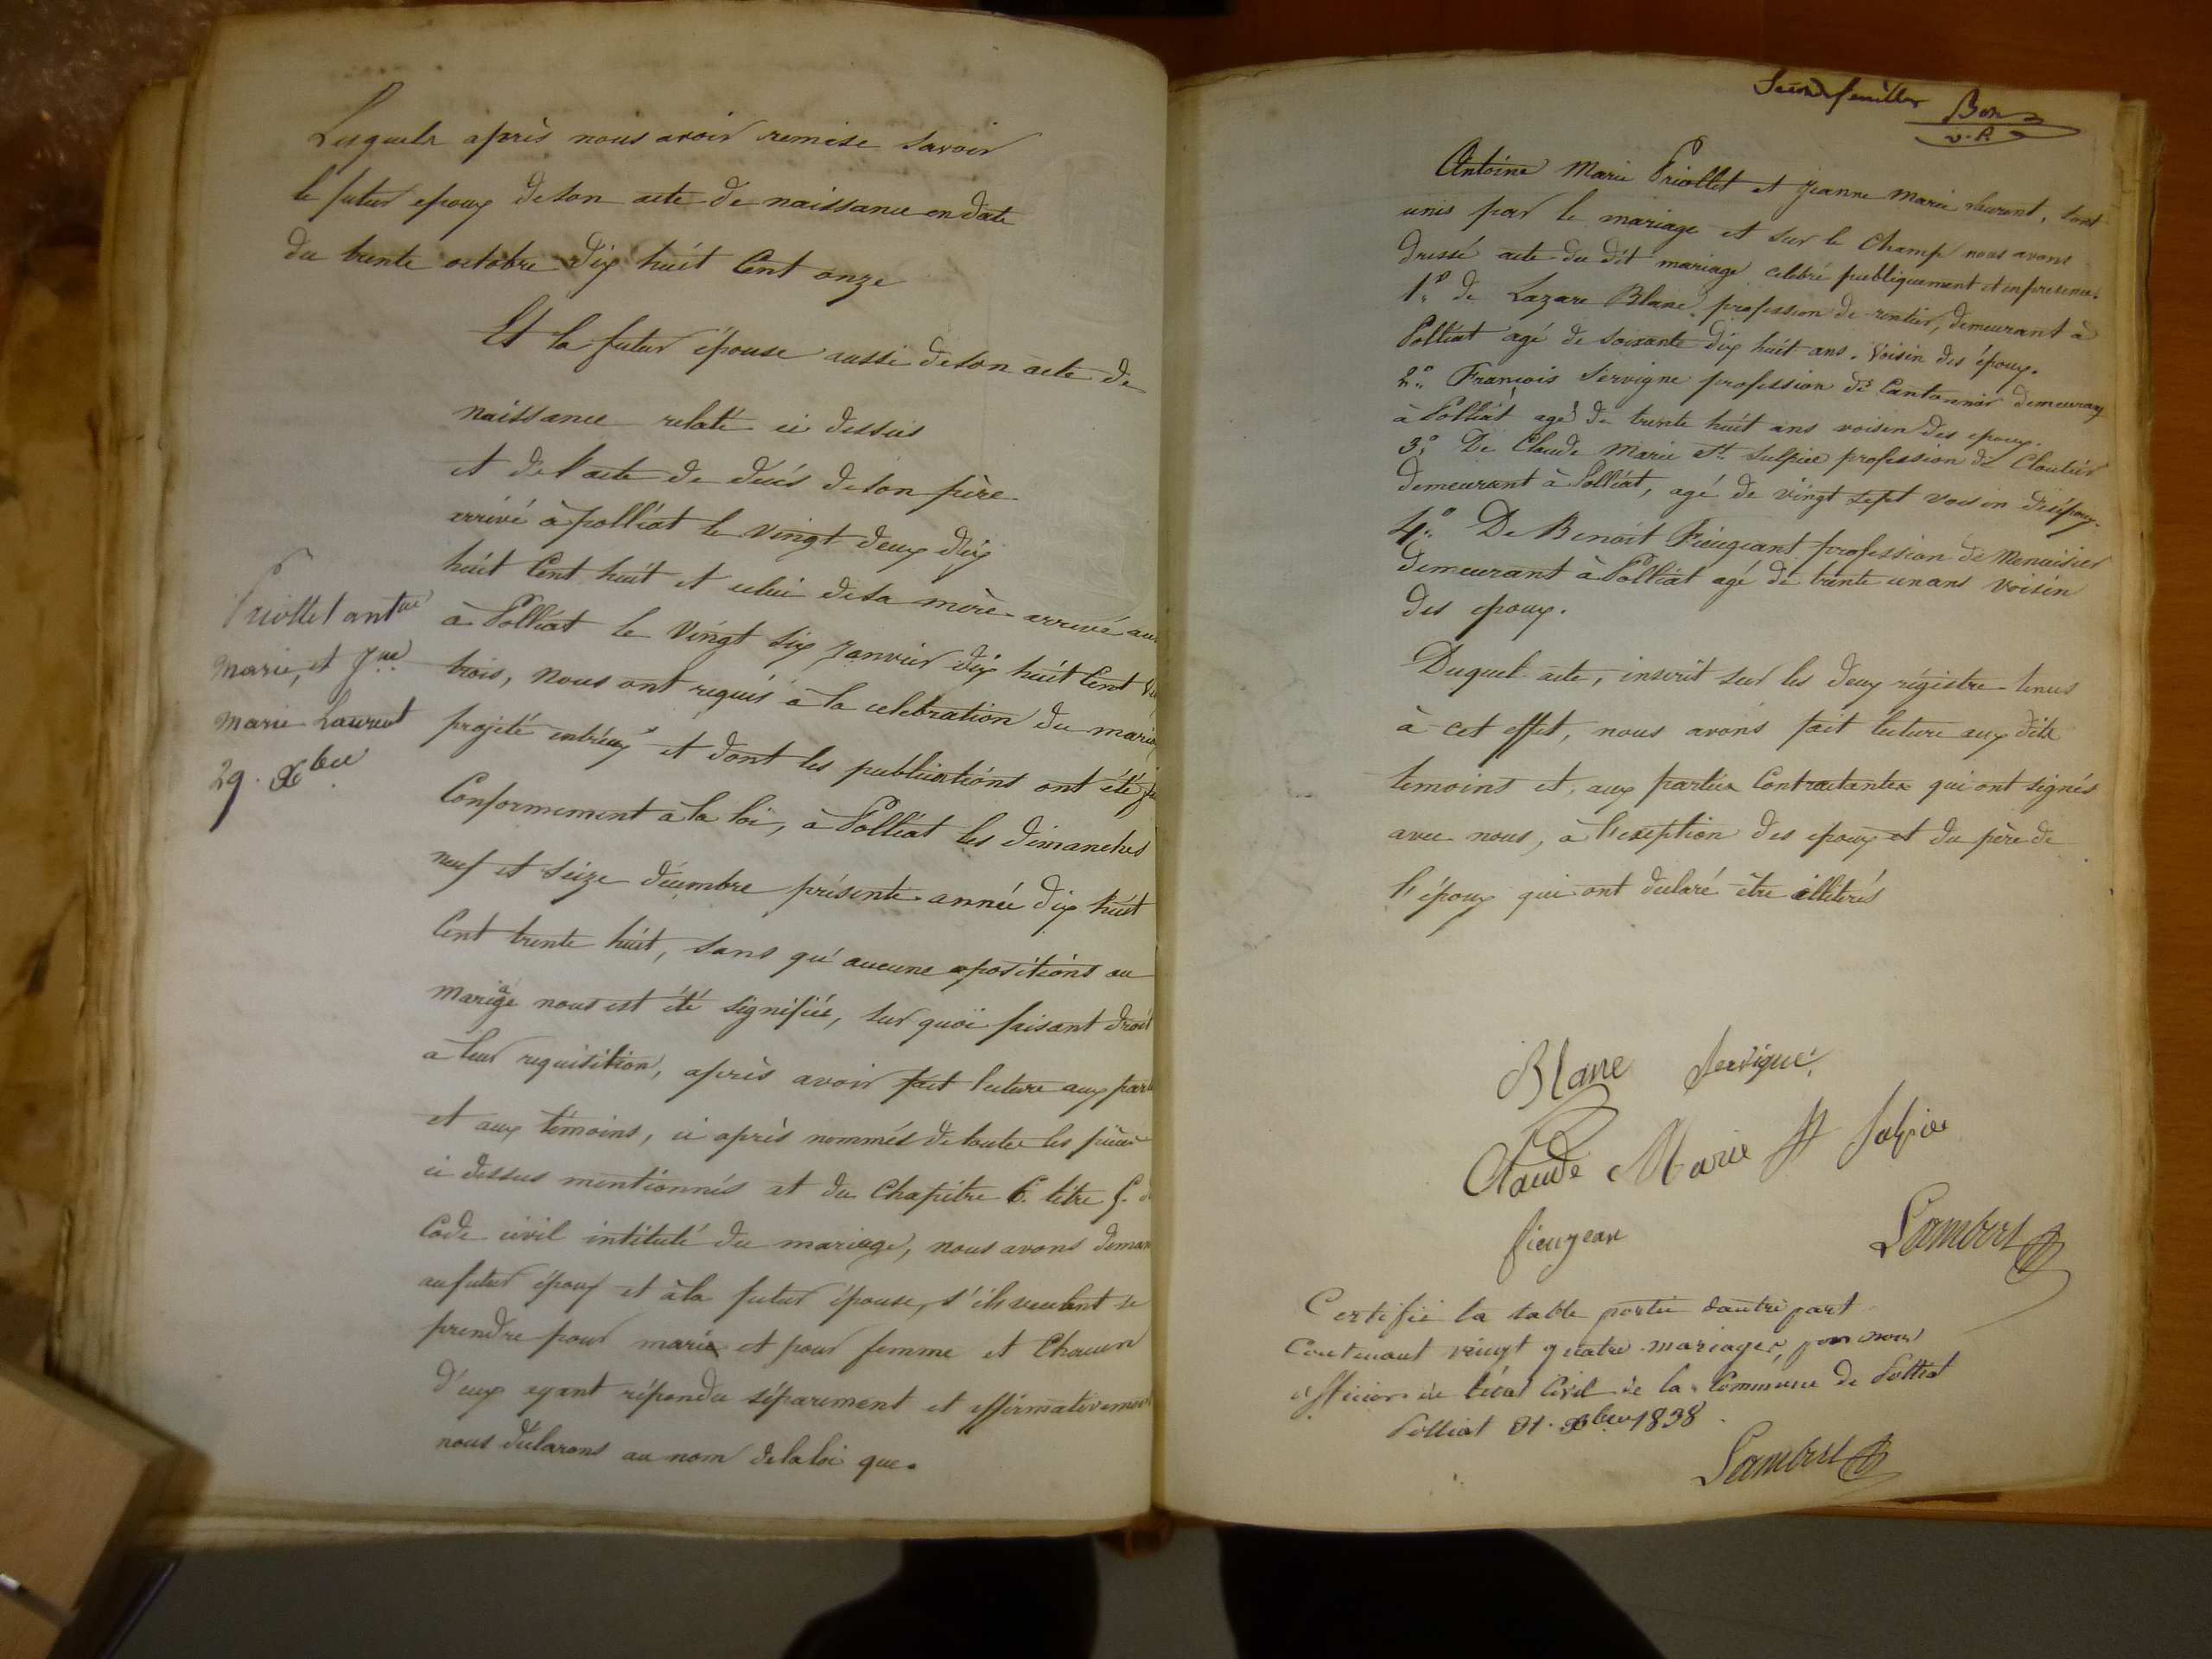 Lesquels après nous avoir remise savoir
le futur epoux de son acte de naissance en date
du trente octobre dix huit Cent onze
Et la futur épouse aussi de son acte de
naissance relaté ci dessus
et de l'acte de décés de son père
arrivé à polliat le vingt deux dix
huit Cent huit et celui de sa mère arrivé au
à Polliat le Vingt six Janvier dix huit Cent
trois, nous ont requis à la celebration du
projeté entréux et dont les publications ont été
Conformement à la loi, à Polliat les dimanches
neuf et seize décembre présente année dix huit
Cent trente huit, sans qu'aucune opositions au
mariage nous est été signifiée, sur quoi faisant droit
à leur requisition, après avoir fait lecture aux
et aux témoins, ci après nommés de toutes les pièces
ci dessus mentionnés et du Chapitre 6. titre 5.
Code civil intitulé du mariage, nous avons
au futur époux et à la futur épouse, s'ils veulent se
prendre pour marie et pour femme et Chacun
d'eux ayant répondu séparement et affirmativement
nous déclarons au nom de la loi que.
Priollet antne
Marie, et Jne
Marie Laurent
29. Xbre
Second feuillet Bon
v. P.
Antoine Marie Priollet et Jeanne Marie Laurent, sont
unis par le mariage et sur le Champ nous avons
dressé acte du dit mariage celebré publiquement et en presence.
1.° de Lazare Blanc profession de rentier, demeurant à
Polliat agé de soixante dix huit ans. Voisin des époux.
2.° François Servigne profession de Cantonnier demeurant
à Polliat agé de trente huit ans voisin des epoux.
3.° De Claude Marie St. Sulpice profession de Cloutier
demeurant à Polliat, agé de vingt sept voisin des époux.
4.° De Benoit Fieugeant profession de Menuisier
demeurant à Polliat agé de trente un ans Voisin
des epoux.
Duquel acte, inscrit sur les deux régistre tenus
à cet effet, nous avons fait lecture aux dits
temoins et, aux parties Contractantes qui ont signés
avec nous, à l'exeption des epoux et du père de
l'époux qui ont declaré être illiterés
Blanc Servigne
Claude Marie St Sulpice
fieugean
Lambert
Certifié la table portée dautre part
Contenant vingt quatre mariages, par nous
officier de létat Civil de la Commune de Polliat
Polliat 31. Xbre 1838.
Lambert